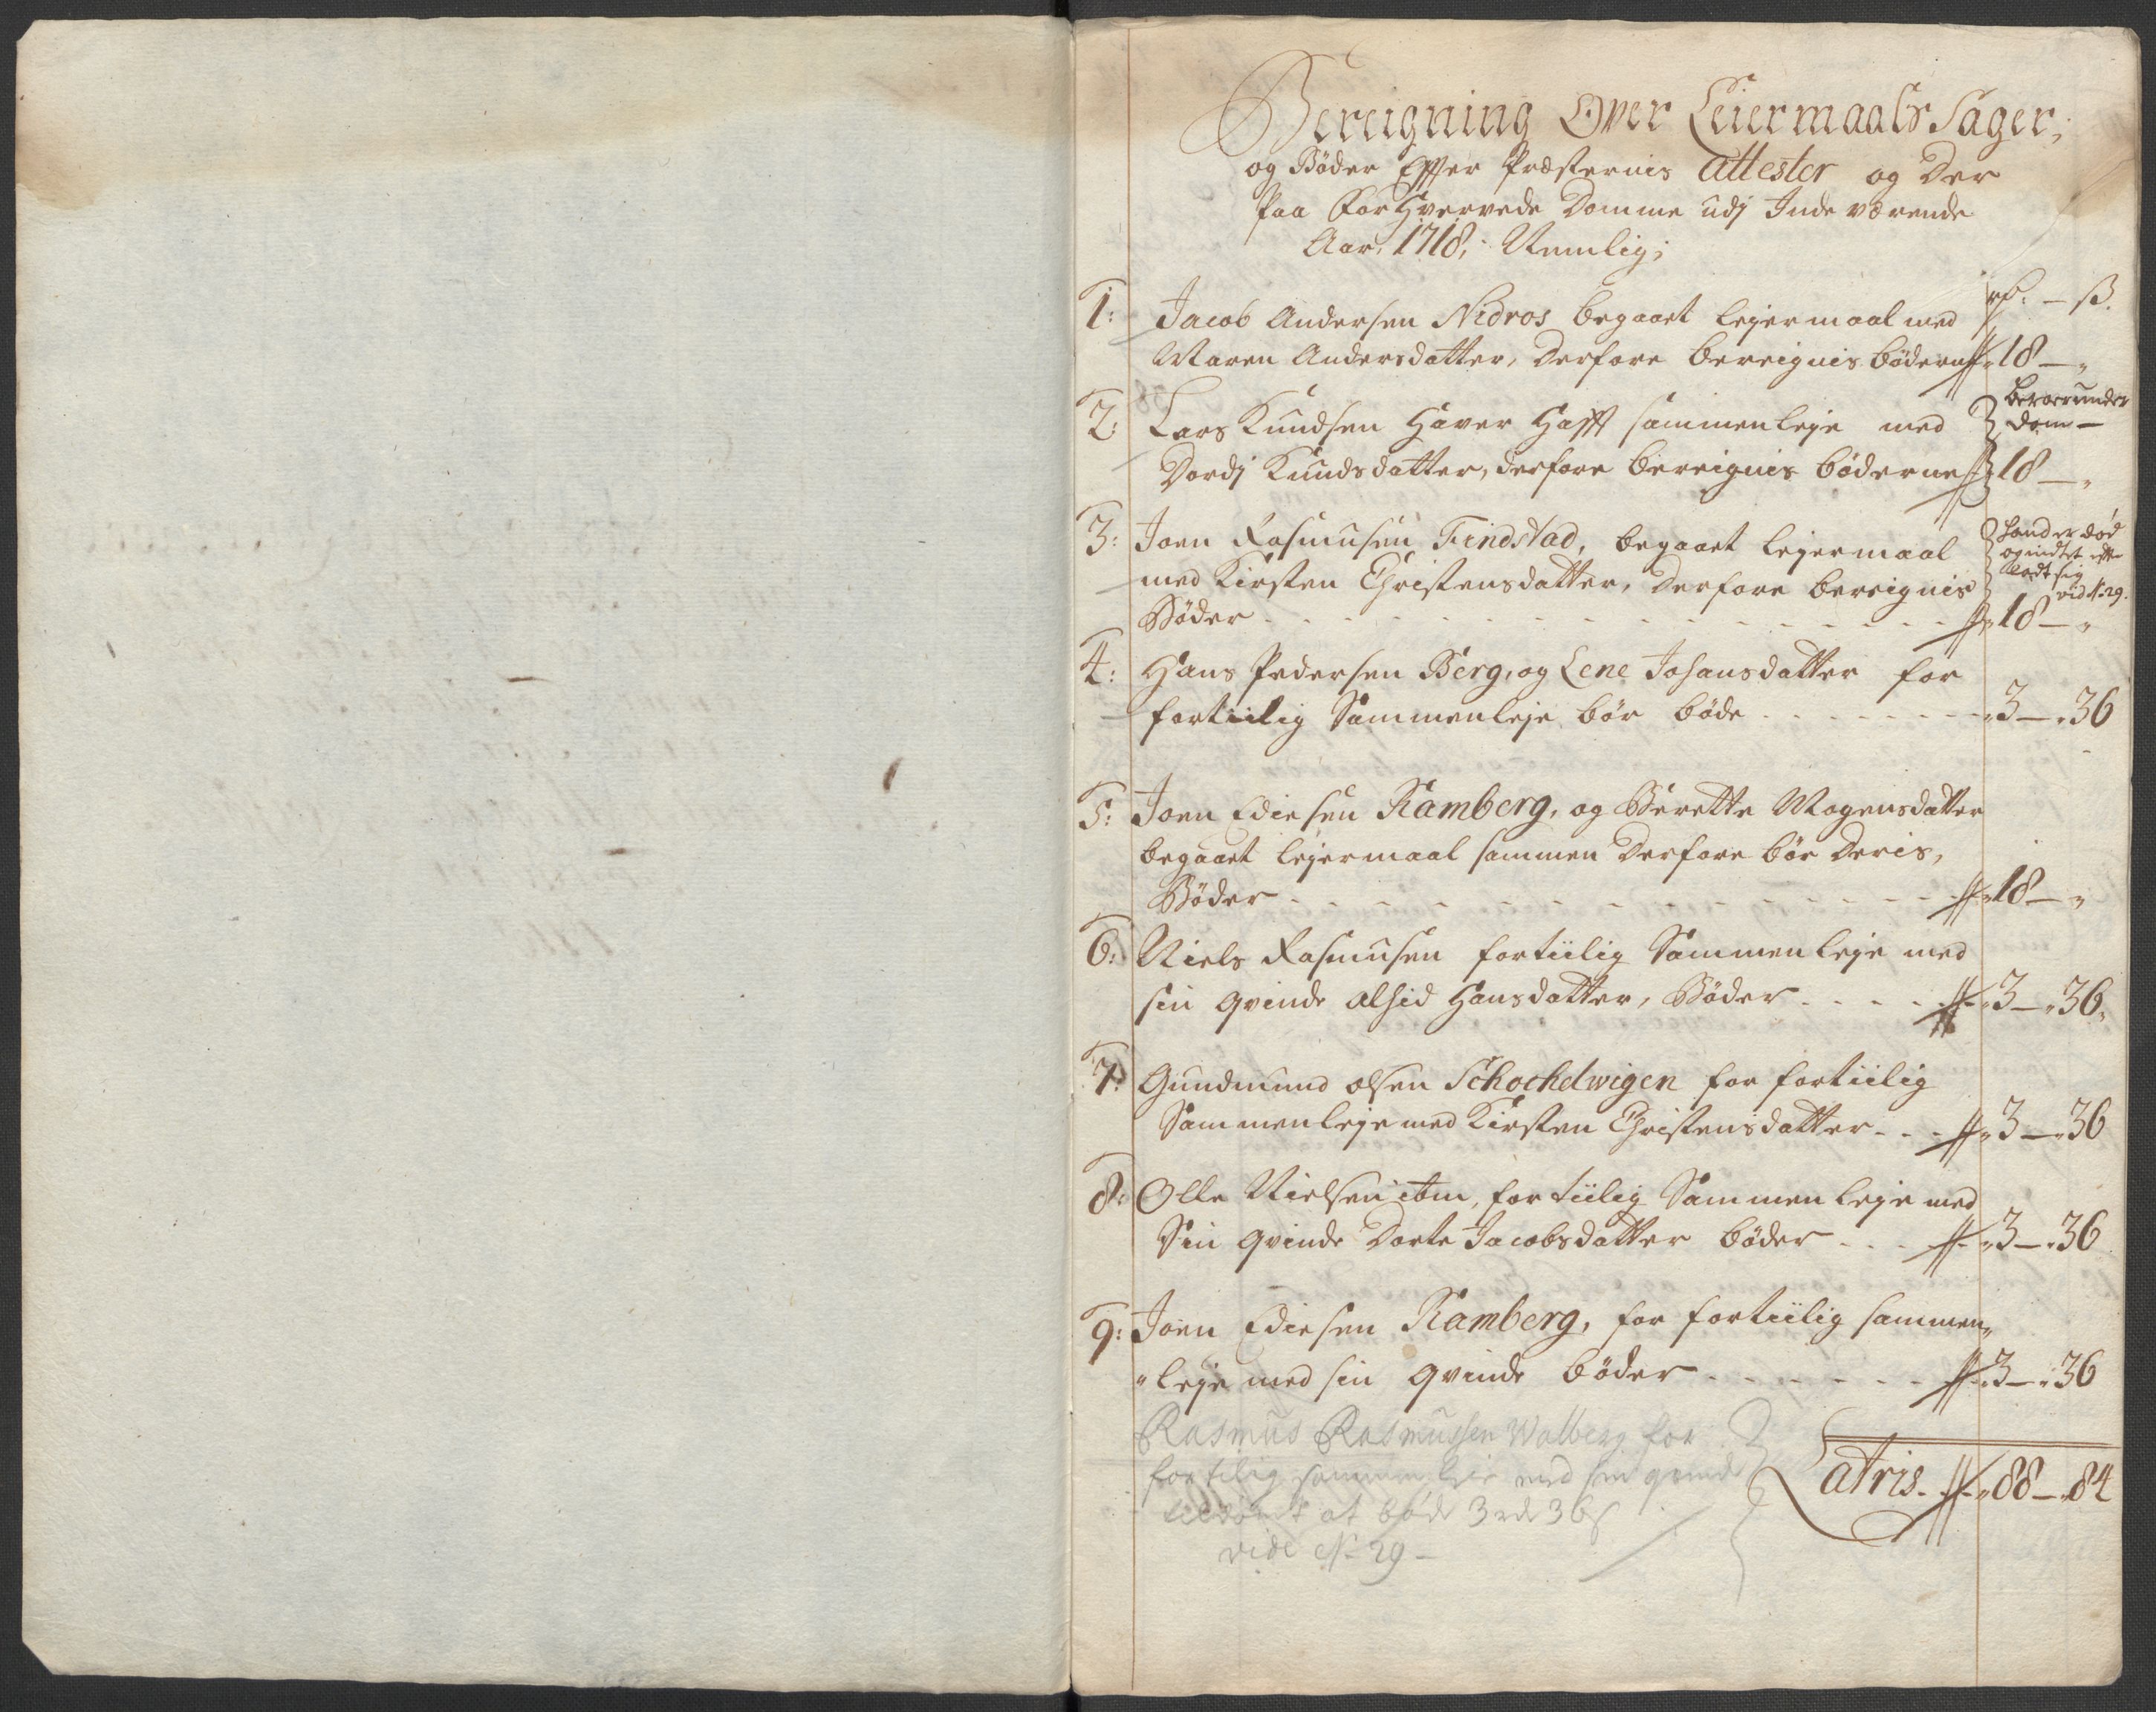 Bereigning Over Leiermaals Sager,
og Bøder Effter Præsternis Attester og Der
Paa ForHvervede Domme udj Inde værende
Aar, 1718, Nemlig;
rd: — ß.
1: Jacob Andersen Nidros begaaet lejermaal med
Maren Andersdatter, Derfore bereignis bøderne 18 — „
2: Lars Knudsen Haver Hafft sammenleje med
beroer under
dom —
Dordj Knudsdatter, derfore bereignis bøderne 18 — „
3: Joen Rasmusen Findstad, begaaet lejermaal
hand er død
og indtet efter
ladt sig
vid N: 29.
med Kirsten Christensdatter, Derfore bereignis
Bøder - - - 18 — „
4: Hans Pedersen Berg, og Lene Johansdatter for
fortiilig Sammenleje bør bøde - - - 3 — 36
5: Joen Edisen Ramberg, og Berette Mogensdatter
begaaet lejermaal sammen Derfore bør Deris,
Bøder - - - 18 — „
6: Niels Rasmusen fortiilig Sammenleje med
sin qvinde Alhid Hansdatter, Bøder - - - 3 — 36
7: Gundmund olsen Schochelwigen for fortiilig
Sammenleje med Kirsten Christensdatter - - - 3 — 36
8: Olle Nielsen ibm, fortiilig Sammenleje med
Sin qvinde Dorte Jacobsdatter bøder - - - 3 — 36
9: Joen Edisen Ramberg, for fortiilig sammen„
„leje med sin qvinde bøder - - - 3 — 36
Rasmus Rasmussen Walberg for
fortilig sammenleie med sin qvinde
tildømt at bøde 3 rd 36 ß
vide N: 29 —
Latris - 88 — 84